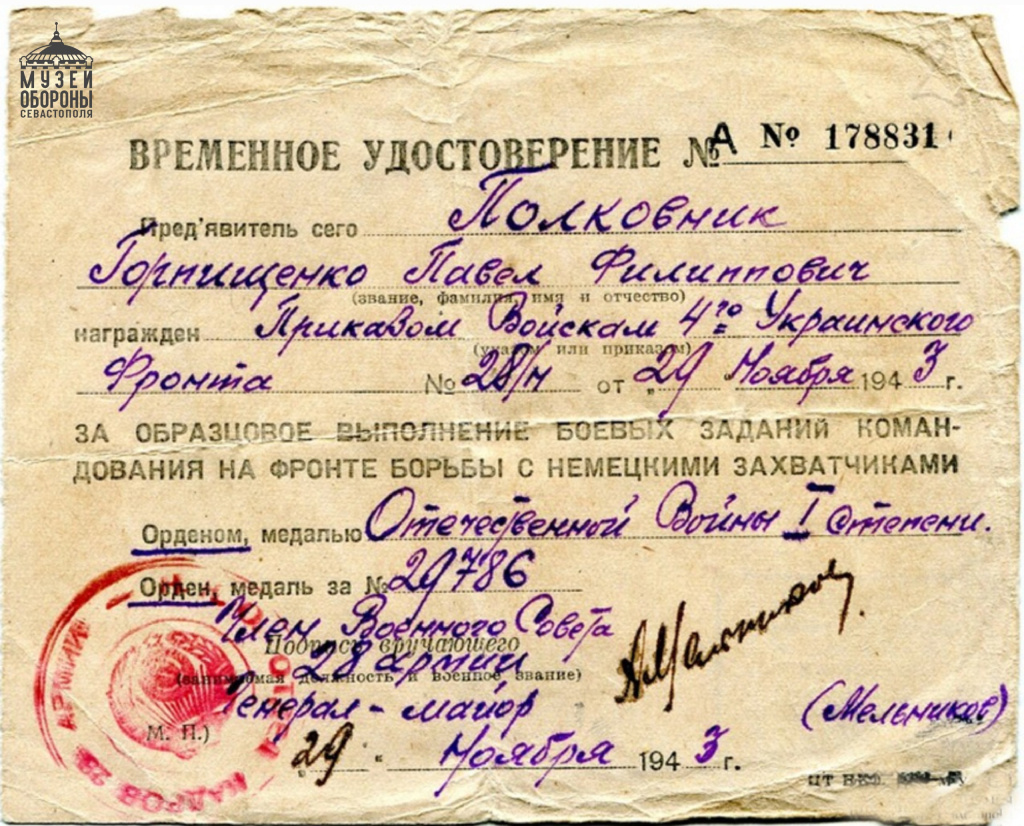 МУЗЕЙ
ОБОРОНЫ
СЕВАСТОПОЛЯ
ВРЕМЕННОЕ УДОСТОВЕРЕНИЕ № А № 178831
Пред'явитель сего Полковник
Горпищенко Павел Филиппович
(звание, фамилия, имя и отчество)
награжден Приказом Войскам 4го Украинского
(указом или приказом)
Фронта № 28/н от „29 " Ноября 1943 г.
ЗА ОБРАЗЦОВОЕ ВЫПОЛНЕНИЕ БОЕВЫХ ЗАДАНИЙ КОМАН-
ДОВАНИЯ НА ФРОНТЕ БОРЬБЫ С НЕМЕЦКИМИ ЗАХВАТЧИКАМИ
Орденом, медалью Отечественной Войны I степени.
Орден, медаль за № 29786
Член Военного Совета
Подпись вручающего
28 армии
(занимаемая должность и военное звание)
Генерал-майор (Мельников)
М. П.)
„29 " Ноября 1943 г.
АРМИИ